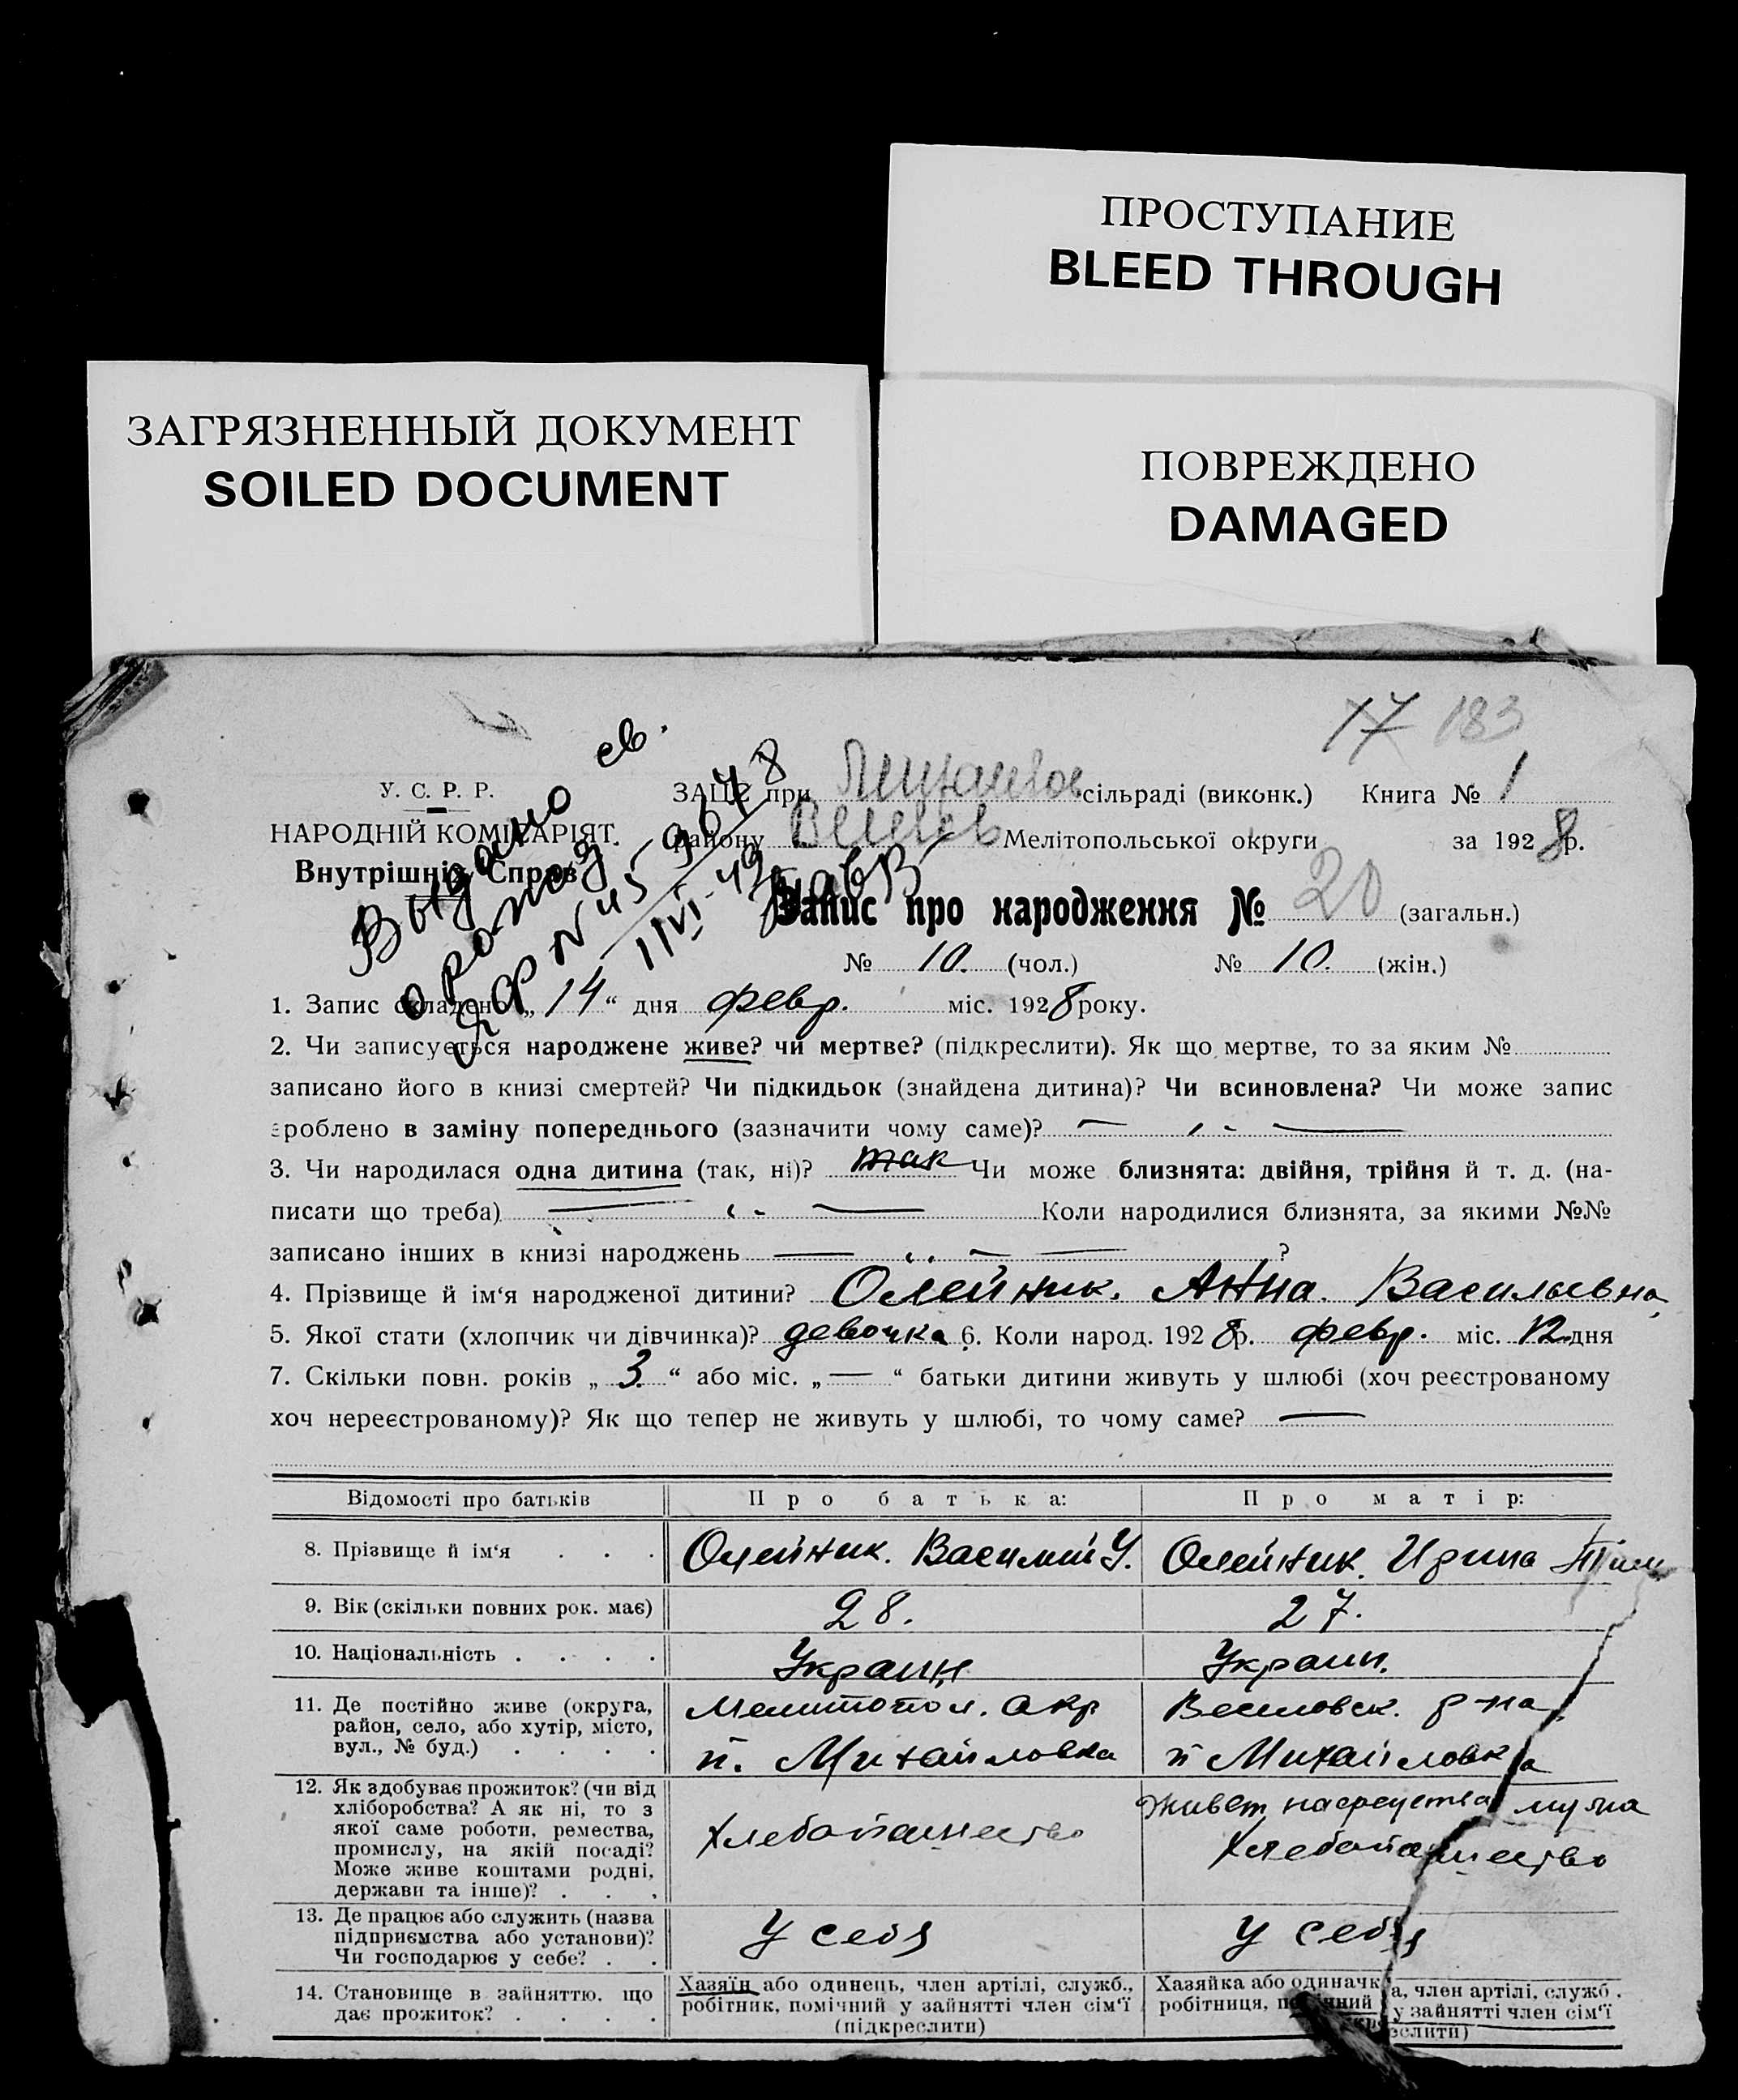 ПРОСТУПАНИЕ
BLEED THROUGH
ЗАГРЯЗНЕННЫЙ ДОКУМЕНТ
SOILED DOCUMENT
ПОВРЕЖДЕНО
DAMAGED
17 183
Выдано св.
о рожд.
ЯФ № 45-9678
11/VI-49
У. С. Р. Р.
НАРОДНІЙ КОМІСАРІЯТ
Внутрішніх Справ
ЗАГС при сільраді (виконк.) Книга № 1
району Мелітопольської округи за 1928 р.
Запис про народження № 20 (загальн.)
№ 10. (чол.) № 10. (жін.)
1. Запис складено „14“ дня февр. міс. 1928 року.
2. Чи записується народжене живе? чи мертве? (підкреслити). Як що мертве, то за яким №
записано його в книзі смертей? Чи підкидьок (знайдена дитина)? Чи всиновлена? Чи може запис
зроблено в заміну попереднього (зазначити чому саме)? —
3. Чи народилася одна дитина (так, ні)? так Чи може близнята: двійня, трійня й т. д. (на-
писати що треба) — Коли народилися близнята, за якими №№
записано інших в книзі народжень — ?
4. Прізвище й ім‘я народженої дитини? Олейник. Анна. Васильевна
5. Якої стати (хлопчик чи дівчинка)? девочка 6. Коли народ. 1928 р. февр. міс. 12 дня
7. Скільки повн. років „ 3. “ або міс. „ — “ батьки дитини живуть у шлюбі (хоч реєстрованому
хоч нереєстрованому)? Як що тепер не живуть у шлюбі, то чому саме? —
Відомості про батьків Про батька: Про матір:
8. Прізвище й ім‘я . . . Олейник. Василий У. Олейник. Ирина Тим.
9. Вік (скільки повних рок. має) 28. 27.
10. Національність . . . . Украин Украин.
11. Де постійно живе (округа,
район, село, або хутір, місто,
вул., № буд.) . . . .
Мелитопол. окр
п. Михайловка
Веселовск. р-на
п Михайловка
12. Як здобуває прожиток? (чи від
хліборобства? А як ні, то з
якої саме роботи, ремества,
промислу, на якій посаді?
Може живе коштами родні,
держави та інше)? . . .
Хлебопашество
Живет на средства мужа
Хлебопашество
13. Де працює або служить (назва
підприємства або установи)?
Чи господарює у себе? . .
У себя
У себя
14. Становище в зайняттю, що
дає прожиток? . . . .
Хазяїн або одинець, член артілі, служб.,
робітник, помічний у зайнятті член сім‘ї
(підкреслити)
Хазяйка або одиначка, член артілі, служб.
робітниця, помічний у зайнятті член сім‘ї